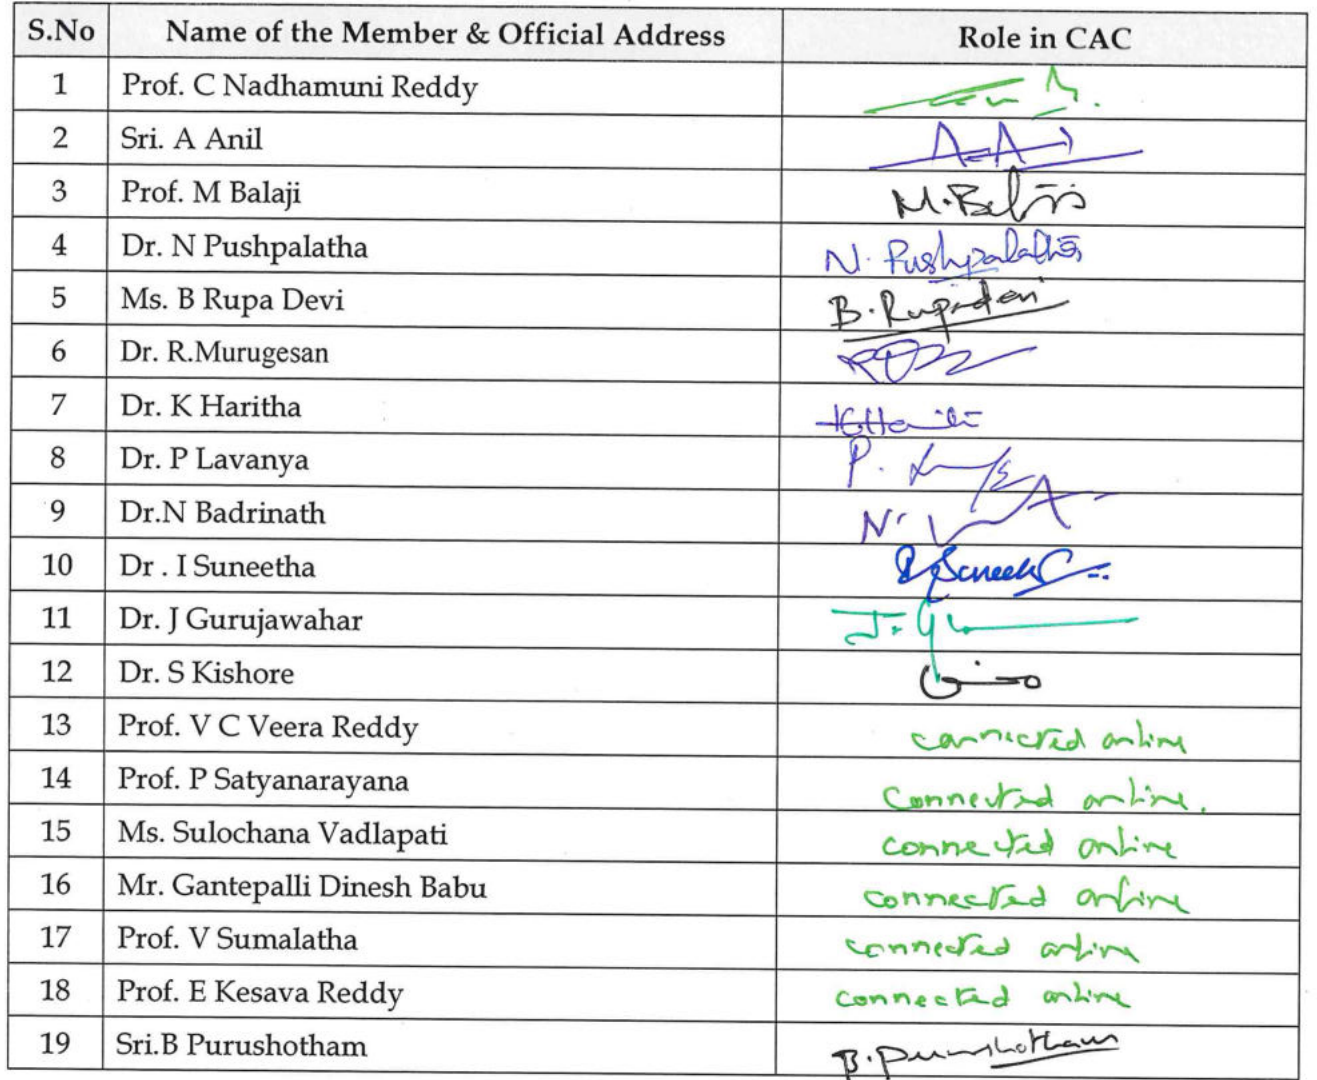 S.No Name of the Member & Official Address Role in CAC
1 Prof. C Nadhamuni Reddy
2 Sri. A Anil
3 Prof. M Balaji M. Balaji
4 Dr. N Pushpalatha N. Pushpalatha
5 Ms. B Rupa Devi B. Rupadevi
6 Dr. R.Murugesan
7 Dr. K Haritha
8 Dr. P Lavanya
9 Dr.N Badrinath
10 Dr . I Suneetha
11 Dr. J Gurujawahar
12 Dr. S Kishore
13 Prof. V C Veera Reddy connected online
14 Prof. P Satyanarayana Connected online.
15 Ms. Sulochana Vadlapati connected online
16 Mr. Gantepalli Dinesh Babu connected online
17 Prof. V Sumalatha connected online
18 Prof. E Kesava Reddy connected online
19 Sri.B Purushotham B. Purushotham